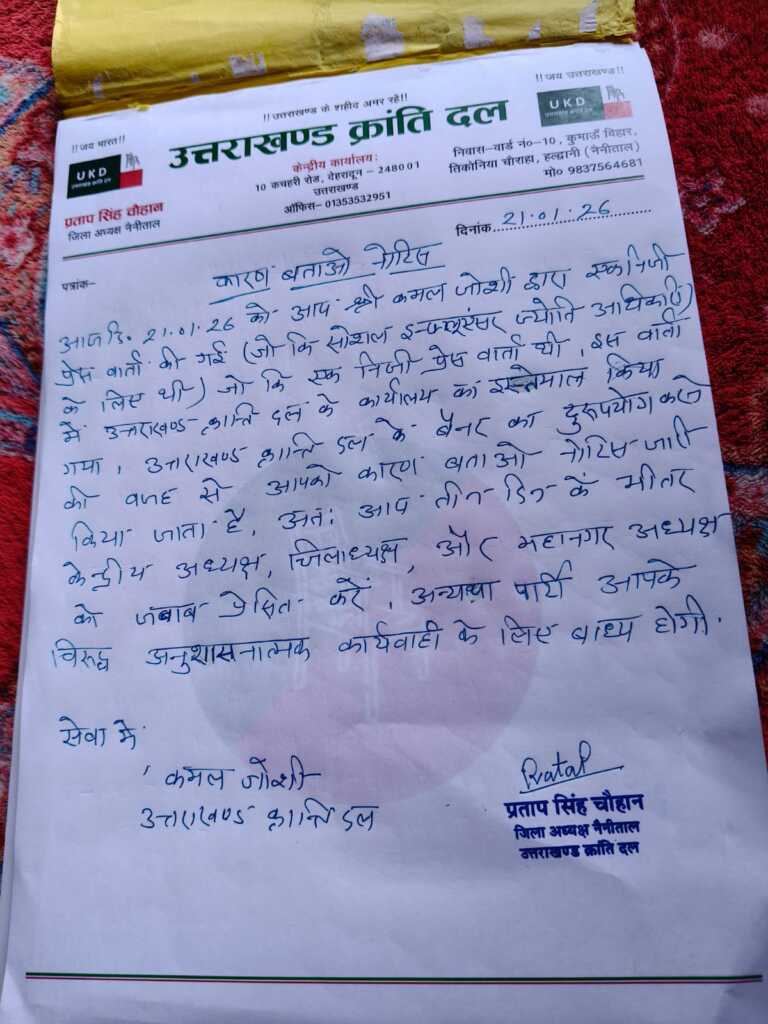 !! उत्तराखण्ड के शहीद अमर रहें!!
!! जय भारत!!
!! जय उत्तराखण्ड!!
UKD
उत्तराखण्ड क्रांति दल
UKD
प्रताप सिंह चौहान
जिला अध्यक्ष नैनीताल
केन्द्रीय कार्यालय:
10 कचहरी रोड, देहरादून – 248001
उत्तराखण्ड
ऑफिस– 01353532951
निवास–वार्ड नं०–10, कुमाऊँ विहार,
तिकोनिया चौराहा, हल्द्वानी (नैनीताल)
मो० 9837564681
पत्रांक–
दिनांक 21.01.26
कारण बताओ नोटिस
आज दि. 21.01.26 को आप श्री कमल जोशी द्वारा एक निजी
प्रेस वार्ता की गई (जो कि सोशल इन्फ्लूएंसर ज्योति अधिकारी)
के लिए थी) जो कि एक निजी प्रेस वार्ता थी, इस वार्ता
में उत्तराखण्ड क्रान्ति दल के कार्यालय का इस्तेमाल किया
गया, उत्तराखण्ड क्रान्ति दल के बैनर का दुरुपयोग करने
की वजह से आपको कारण बताओ नोटिस जारी
किया जाता है, अतः आप तीन दिन के भीतर
केन्द्रीय अध्यक्ष, जिलाध्यक्ष, और महानगर अध्यक्ष
को जबाब प्रेषित करें, अन्यथा पार्टी आपके
विरुद्ध अनुशासनात्मक कार्यवाही के लिए बाध्य होगी.
सेवा में
कमल जोशी
उत्तराखण्ड क्रान्ति दल
Pratap
प्रताप सिंह चौहान
जिला अध्यक्ष नैनीताल
उत्तराखण्ड क्रांति दल